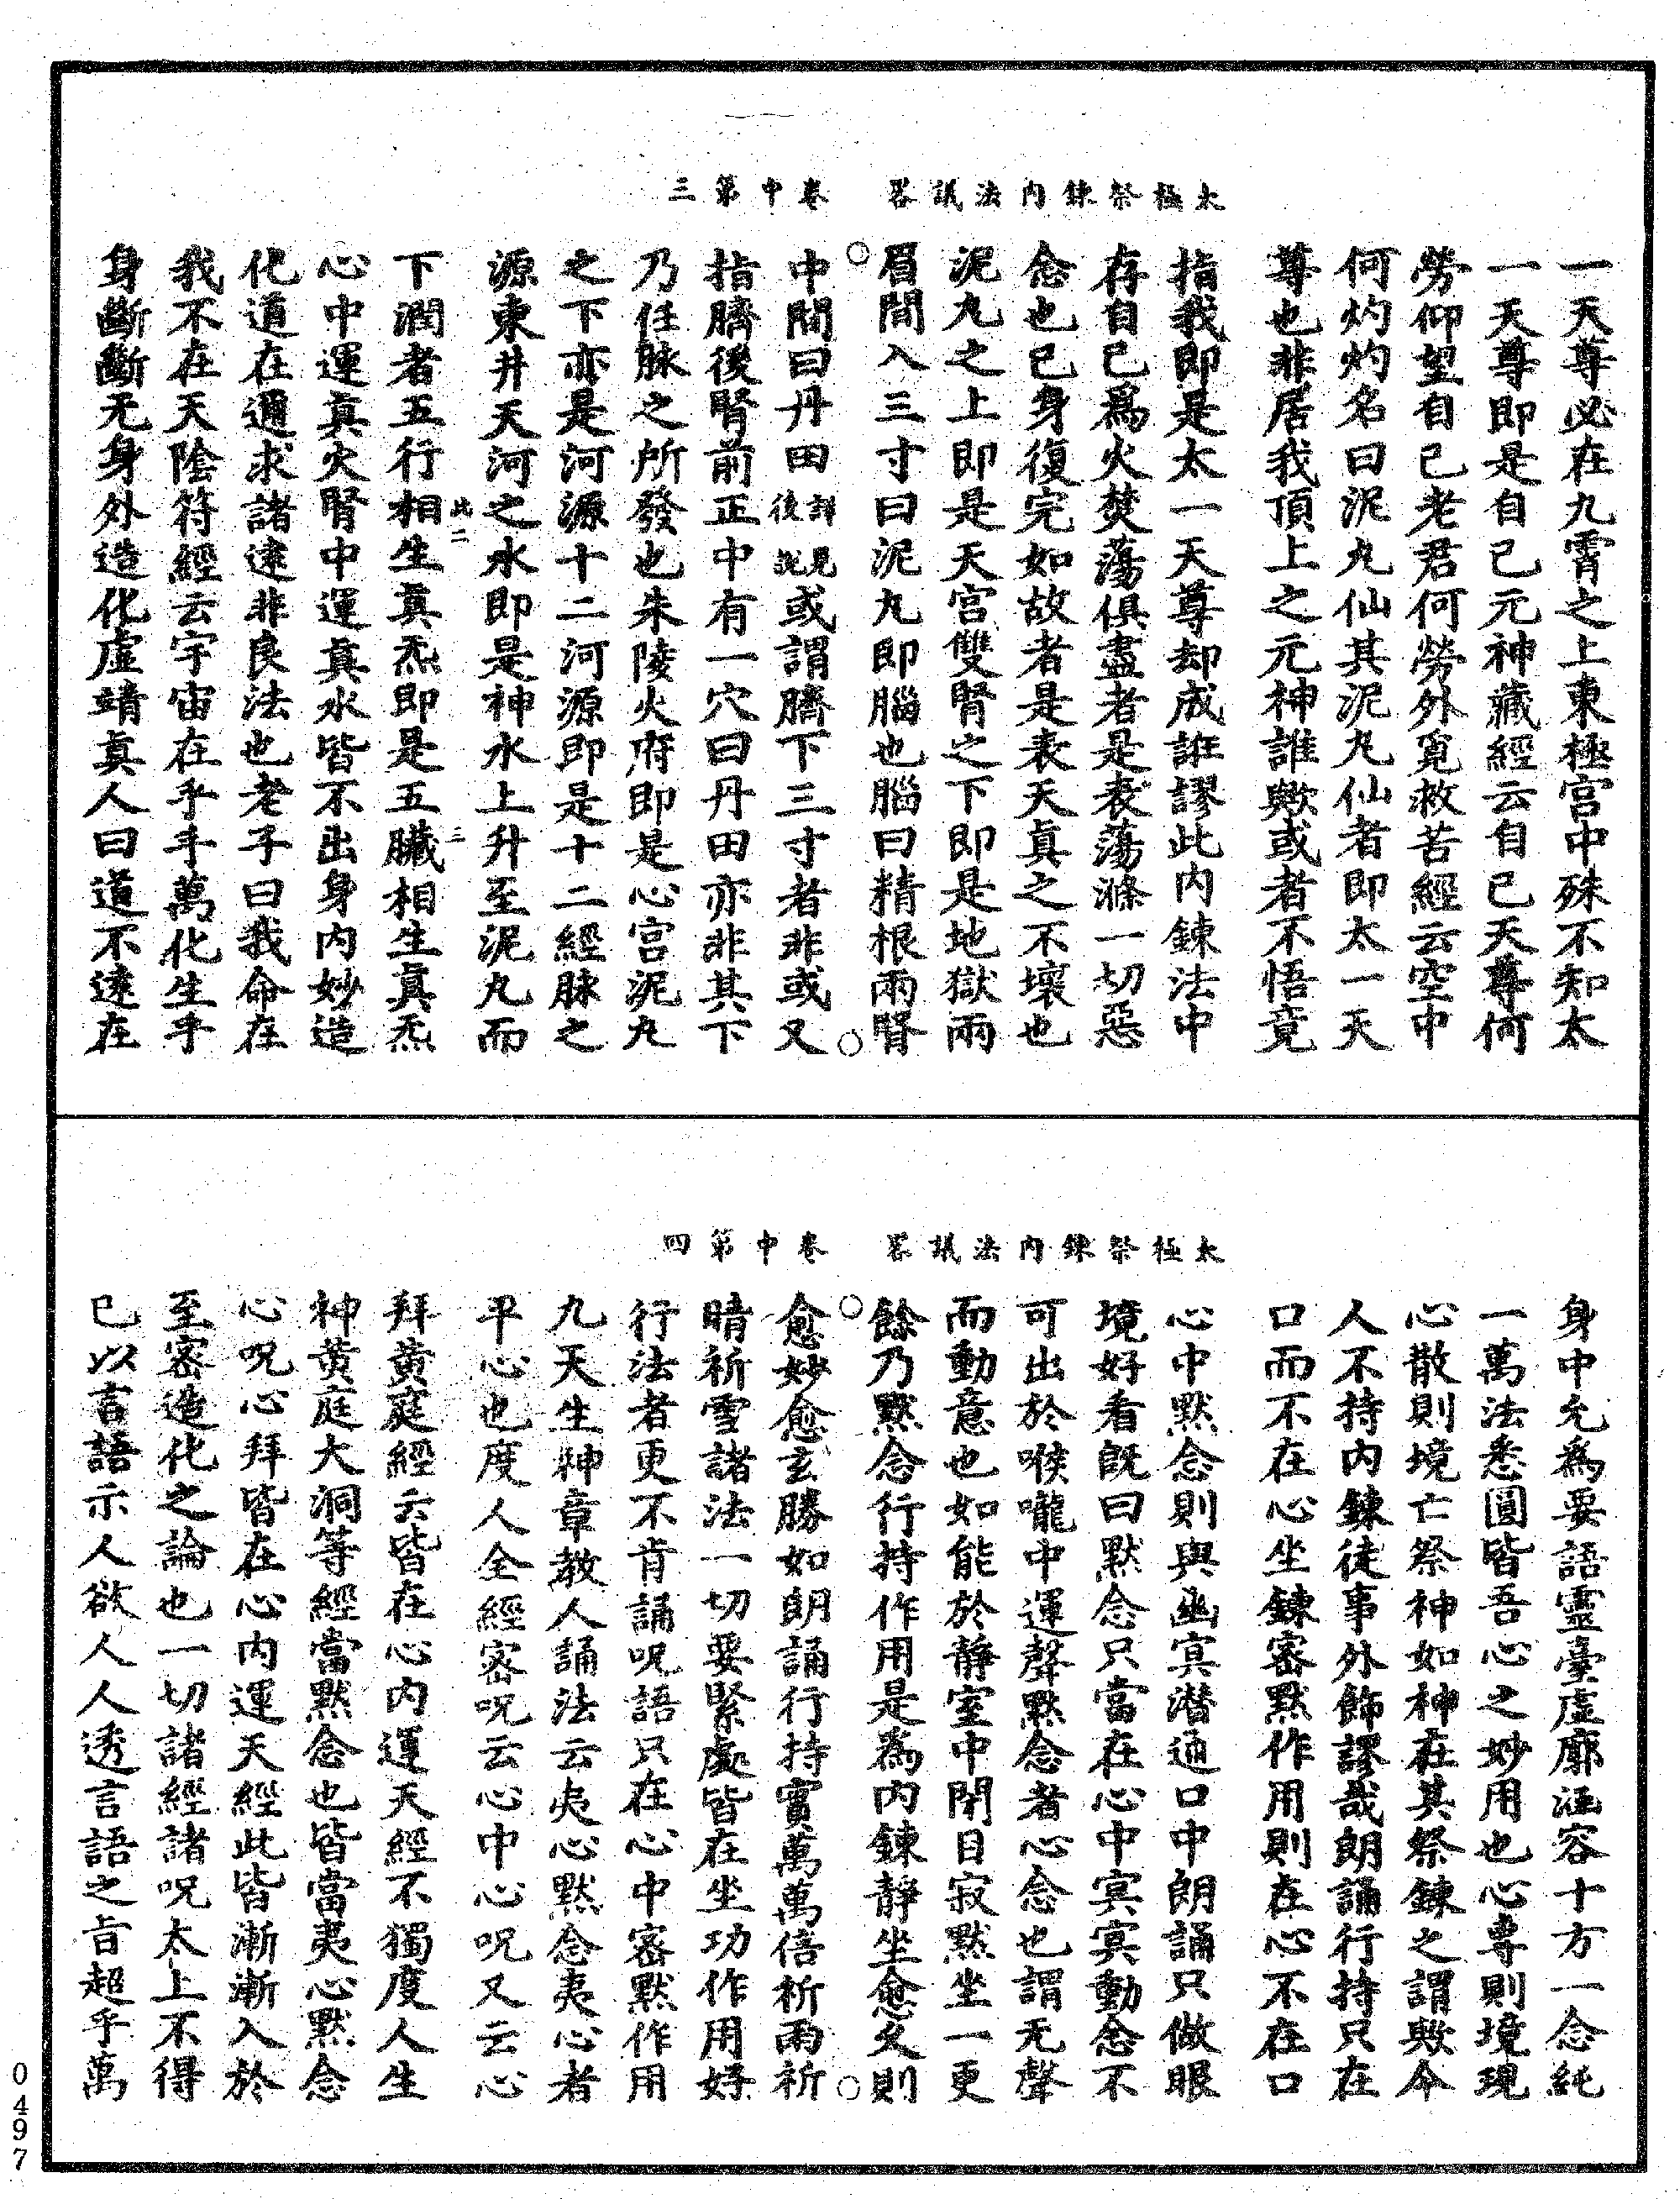 太極祭鍊內法議畧　卷中第三
一天尊必在九霄之上東極宮中殊不知太
一天尊即是自己元神藏經云自己天尊何
勞仰望自己老君何勞外覓救苦經云空中
何灼灼名曰泥丸仙其泥丸仙者即太一天
尊也非居我頂上之元神誰歟或者不悟竟
指我即是太一天尊却成誑謬此內鍊法中
存自己爲火焚蕩俱盡者是表蕩滌一切惡
念也已身復完如故者是表天真之不壞也
泥丸之上即是天宮雙腎之下即是地獄兩
眉間入三寸曰泥丸即腦也腦曰精根兩腎
中間曰丹田詳見後說或謂臍下三寸者非或又
指臍後腎前正中有一穴曰丹田亦非其下
乃任脉之所發也朱陵火府即是心宮泥丸
之下亦是河源十二河源即是十二經脉之
源東井天河之水即是神水上升至泥丸而
下潤者五行相生真炁即是五臟相生真炁
此二　三
心中運真火腎中運真水皆不出身內妙造
化道在邇求諸遠非良法也老子曰我命在
我不在天陰符經云宇宙在乎手萬化生乎
身斷斷无身外造化虛靖真人曰道不遠在
太極祭鍊內法議畧　卷中第四
身中允爲要語靈臺虛廓涵容十方一念純
一萬法悉圓皆吾心之妙用也心專則境現
心散則境亡祭神如神在其祭鍊之謂歟今
人不持內鍊徒事外飾謬哉朗誦行持只在
口而不在心坐鍊密默作用則在心不在口
心中默念則與幽冥潛通口中朗誦只做眼
境好看既曰默念只當在心中冥冥動念不
可出於喉嚨中運聲默念者心念也謂无聲
而動意也如能於靜室中閉目寂默坐一更
餘乃默念行持作用是爲內鍊靜坐愈久則
愈妙愈玄勝如朗誦行持實萬萬倍祈雨祈
晴祈雪諸法一切要緊處皆在坐功作用好
行法者更不肯誦呪語只在心中密默作用
九天生神章教人誦法云夷心默念夷心者
平心也度人全經密呪云心中心呪又云心
拜黃庭經云皆在心內運天經不獨度人生
神黃庭大洞等經當默念也皆當夷心默念
心呪心拜皆在心內運天經此皆漸漸入於
至密造化之論也一切諸經諸呪太上不得
已以言語示人欲人人透言語之旨超乎萬
0497